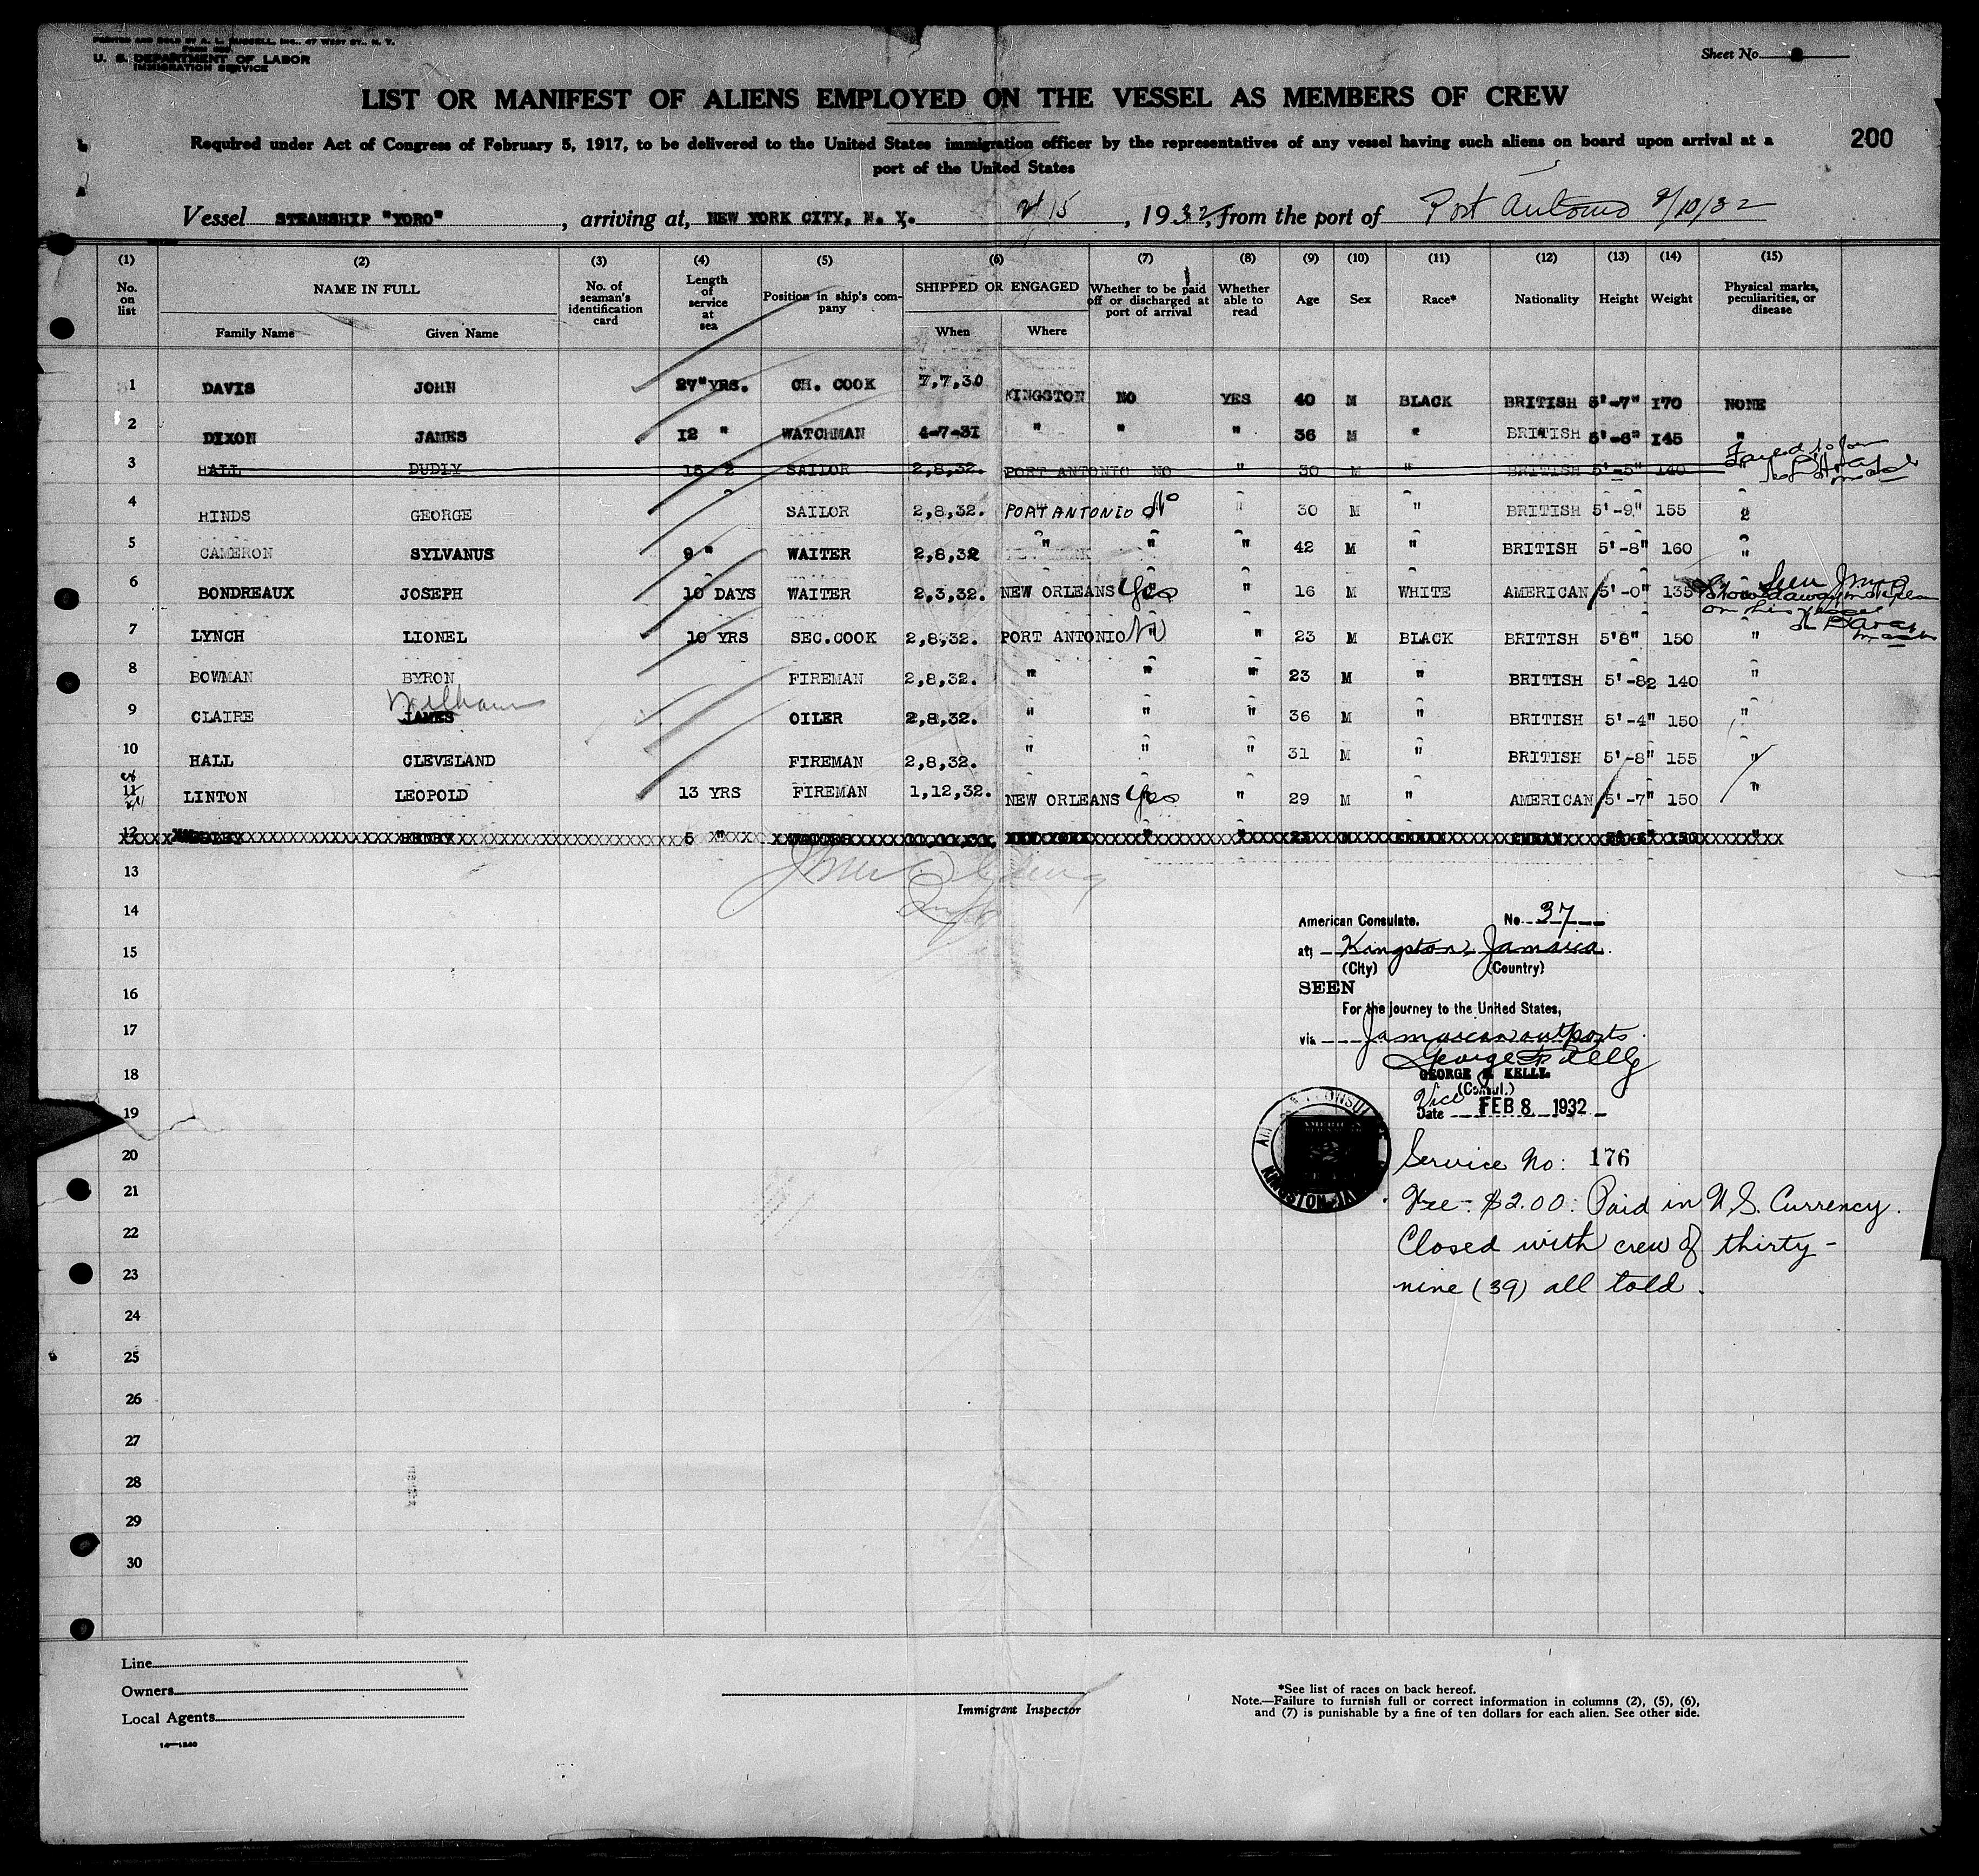 PRINTED AND SOLD BY A. L. RUSSELL, INC., 47 WEST ST., N. Y.
U. S. DEPARTMENT OF LABOR
IMMIGRATION SERVICE
Sheet No.
LIST OR MANIFEST OF ALIENS EMPLOYED ON THE VESSEL AS MEMBERS OF CREW
Required under Act of Congress of February 5, 1917, to be delivered to the United States immigration officer by the representatives of any vessel having such aliens on board upon arrival at a
port of the United States
200
Vessel STEAMSHIP "YORO", arriving at, NEW YORK CITY, N. Y. 15, 1932, from the port of Port Antonio 2/10/32
(1) (2) (3) (4) (5) (6) (7) (8) (9) (10) (11) (12) (13) (14) (15)
No. on list NAME IN FULL Family Name Given Name No. of seaman's identification card Length of service at sea Position in ship's company SHIPPED OR ENGAGED When Where Whether to be paid off or discharged at port of arrival Whether able to read Age Sex Race* Nationality Height Weight Physical marks, peculiarities, or disease
1 DAVIS JOHN 27 YRS. CH. COOK 7,7,30 KINGSTON NO YES 40 M BLACK BRITISH 5'-7" 170 NONE
2 DIXON JAMES 12 " WATCHMAN 4-7-31 " " " 36 M " BRITISH 5'-6" 145 "
3 HALL DUDLY 15 2 SAILOR 2,8,32. PORT ANTONIO NO " 30 M " BRITISH 5'-5" 140 " Failed to Join
4 HINDS GEORGE SAILOR 2,8,32. PORT ANTONIO No " 30 M " BRITISH 5'-9" 155
5 CAMERON SYLVANUS 9 " WAITER 2,8,32 " " " 42 M " BRITISH 5'-8" 160 "
6 BONDREAUX JOSEPH 10 DAYS WAITER 2,3,32. NEW ORLEANS Yes " 16 M WHITE AMERICAN 5'-0" 135
on his vessel
7 LYNCH LIONEL 10 YRS SEC.COOK 2,8,32. PORT ANTONIO No " 23 M BLACK BRITISH 5'8" 150 "
8 BOWMAN BYRON FIREMAN 2,8,32. " " " 23 M " BRITISH 5'-82 140 "
William
9 CLAIRE JAMES OILER 2,8,32. " " " 36 M " BRITISH 5'-4" 150 "
10 HALL CLEVELAND FIREMAN 2,8,32. " " " 31 M " BRITISH 5'-8" 155 "
11 LINTON LEOPOLD 13 YRS FIREMAN 1,12,32. NEW ORLEANS Yes " 29 M " AMERICAN 5'-7" 150 "
12 HENRY 5 " NEW YORK " " 150 "
13
14
15
16
17
18
19
20
21
22
23
24
25
26
27
28
29
30
American Consulate. No. 37
at; Kingston, Jamaica.
(City) (Country)
SEEN
For the journey to the United States,
via Jamaican outports
George F. Kelly
GEORGE F. KELLY.
(Consul.)
Vice
Date FEB 8 1932
KINGSTON, JAMAICA
Service No: 176
Fee - $2.00: Paid in U.S. Currency.
Closed with crew of thirty-
nine (39) all told.
Line
Owners
Local Agents
14—1240
Immigrant Inspector
*See list of races on back hereof.
Note.—Failure to furnish full or correct information in columns (2), (5), (6),
and (7) is punishable by a fine of ten dollars for each alien. See other side.